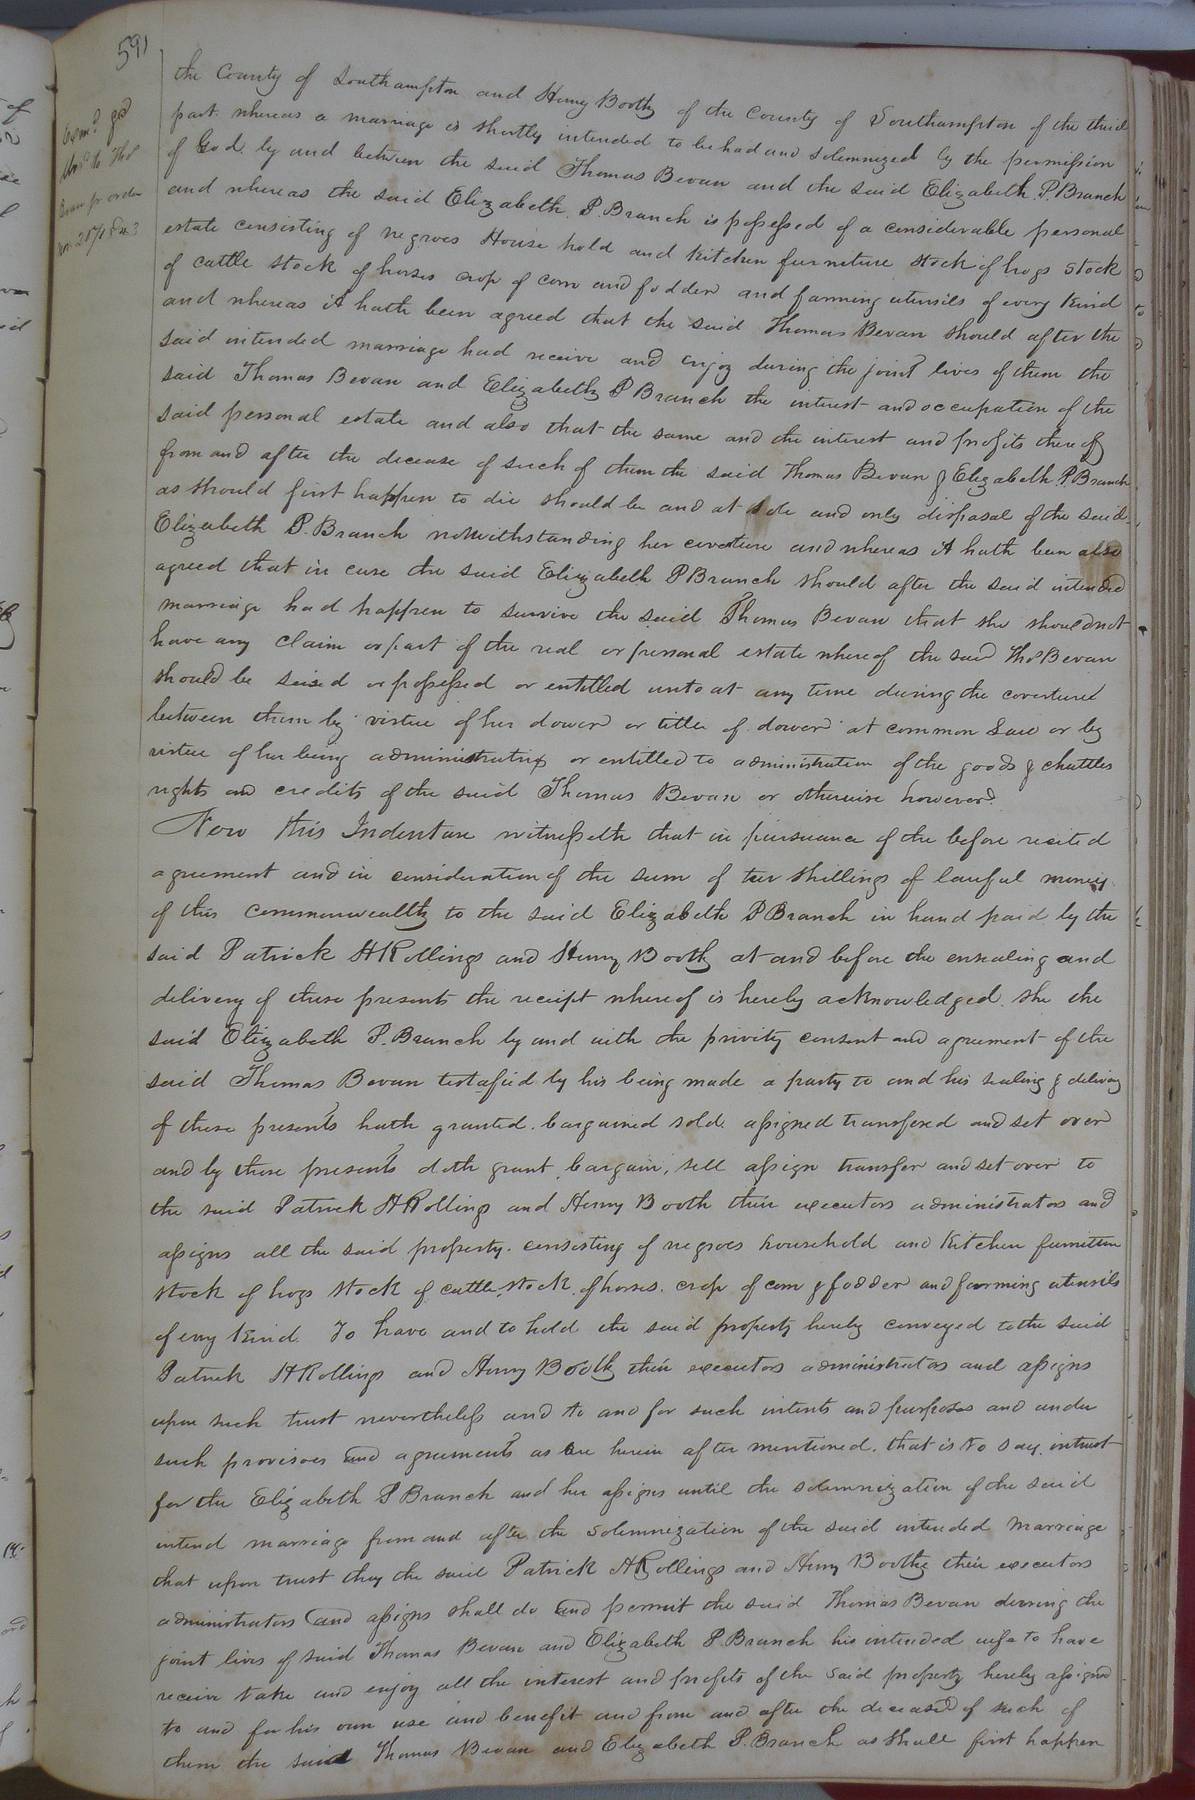 591
the County of Southampton and Henry Booth of the County of Southampton of the third
part whereas a marriage is shortly intended to be had and solemnized by the permission
of God by and between the said Thomas Bevan and the said Elizabeth P. Branch
and whereas the said Elizabeth P. Branch is possessed of a considerable personal
estate consisting of negroes House hold and kitchen furneture stock of hogs stock
of cattle stock of horses crop of corn and fodder and farming utensils of every kind
and whereas it hath been agreed that the said Thomas Bevan should after the
said intended marriage had receive and enjoy during the joint lives of them the
said Thomas Bevan and Elizabeth P Branch the interest and occupation of the
said personal estate and also that the same and the interest and profits thereof
from and after the decease of such of them the said Thomas Bevan & Elizabeth P. Branch
as should first happen to die should be and at sole and only disposal of the said
Elizabeth P. Branch notwithstanding her coverture and whereas it hath been also
agreed that in case the said Elizabeth P Branch should after the said intended
marriage had happen to survive the said Thomas Bevan that she should not
have any claim or part of the real or personal estate whereof the said Thos Bevan
should be seised or possessed or entitled unto at any time during the covertured
between them by virtue of her dower or title of dower at common Law or by
virtue of her being administratrix or entitled to administration of the goods & chattles
rights and credits of the said Thomas Bevan or otherwise however.
Now this Indenture witnesseth that in pursuance of the before recited
agreement and in consideration of the sum of ten shillings of lawful money
of this commonwealth to the said Elizabeth P Branch in hand paid by the
said Patrick H Rollings and Henry Booth at and before the ensealing and
delivery of these presents the receipt whereof is hereby acknowledged she the
said Elizabeth P. Branch by and with the privity consent and agreement of the
said Thomas Bevan testafied by his being made a party to and his sealing & delivery
of these presents hath granted bargained sold assigned transfered and set over
and by these presents doth grant, bargain, sell assign transfer and set over to
the said Patrick H Rollings and Henry Booth their executors administrators and
assigns all the said property consisting of negroes household and Kitchen furniture
stock of hogs stock of cattle, stock of horses, crop of corn & fodder and farming utensils
of every kind To have and to hold the said property hereby conveyed to the said
Patrick H Rollings and Henry Booth their executors administrators and assigns
upon such trust nevertheless and to and for such intents and purposes and under
such provisoes and agreements as are herein after mentioned, that is to say, intrust
for the Elizabeth P Branch and her assigns until the solemnization of the said
intend marriage from and after the solemnization of the said intended marriage
that upon trust they the said Patrick H Rollings and Henry Booth their executors
administrators and assigns shall do and permit the said Thomas Bevan during the
joint lives of said Thomas Bevan and Elizabeth P. Branch his intended wife to have
receive take and enjoy all the interest and profits of the said property hereby assigned
to and for his own use and benefit and from and after the deceased of such of
them the said Thomas Bevan and Elizabeth P. Branch as shall first happen